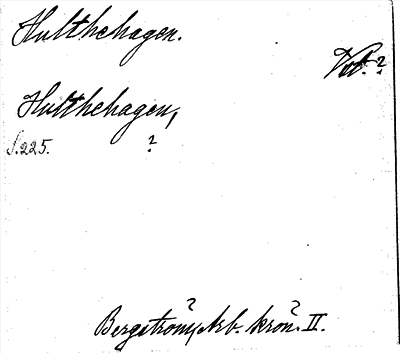 Hulthehagen.
Vdt. ?
Hulthehagen,
S. 225. ?
Bergström, Arb. krön. II.
? ?